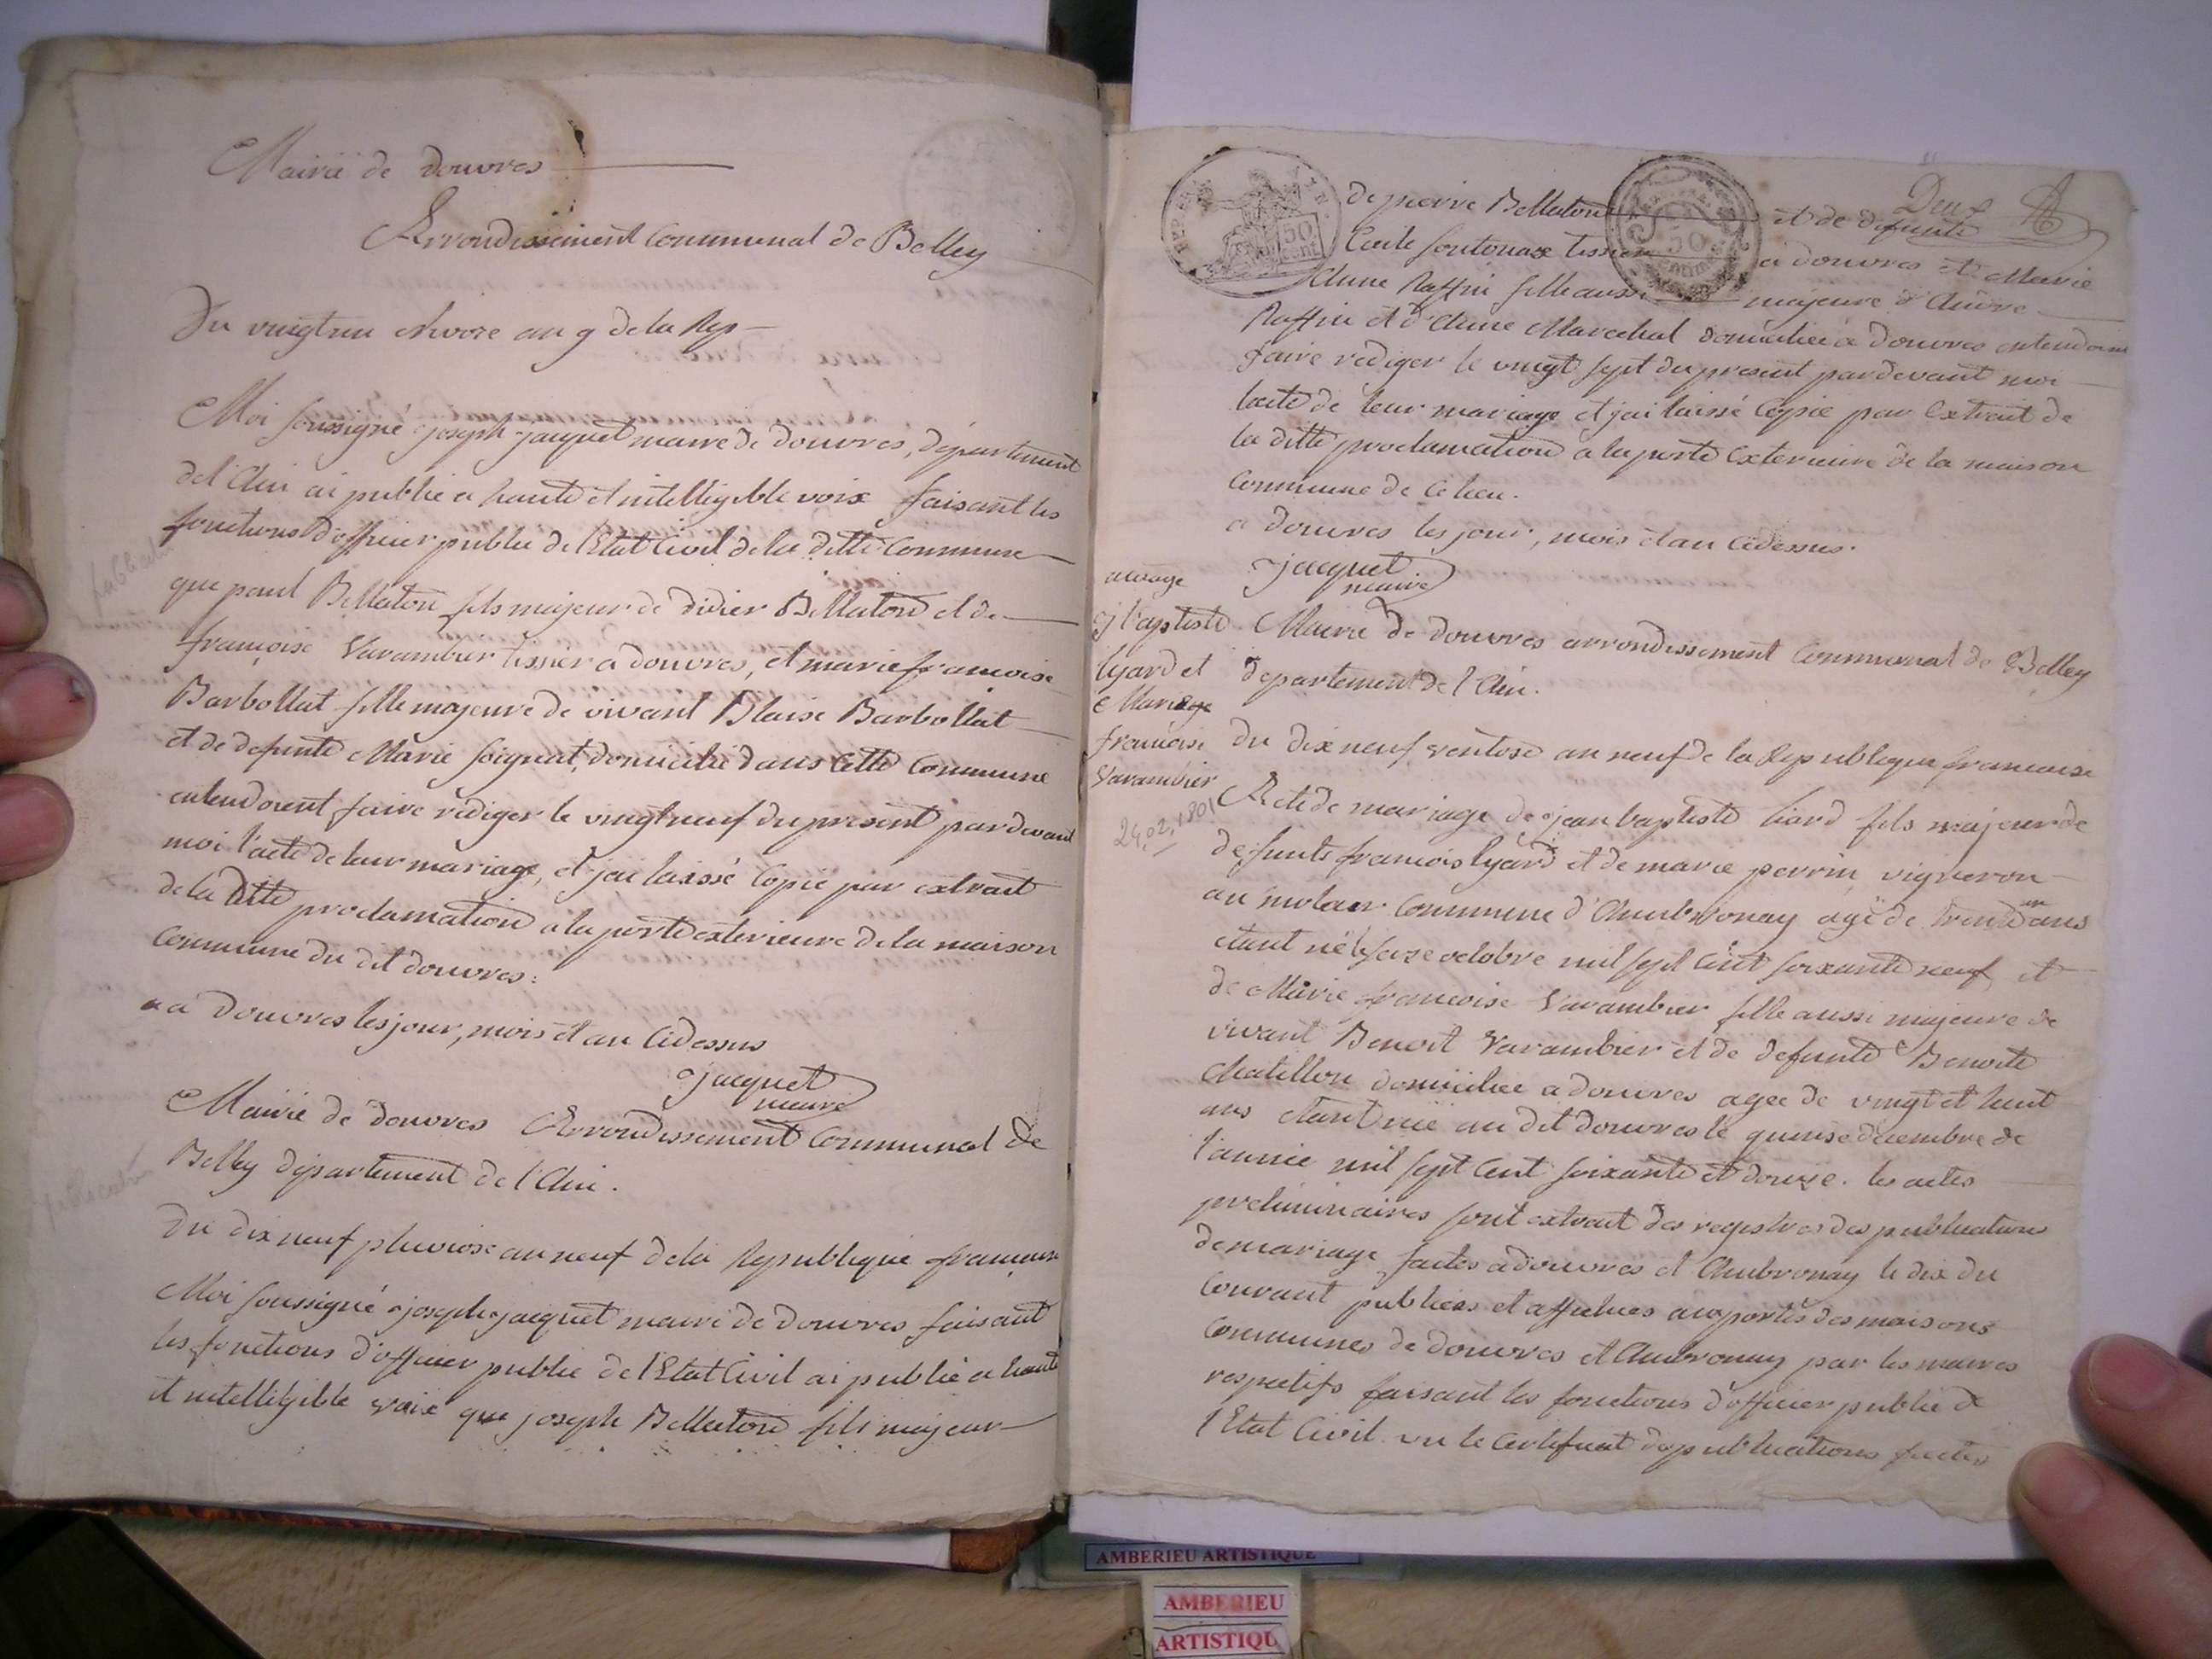 Mairie de douvres
Arrondissement Communal de Belley
Du vingt un nivose an 9 de la Rep
Moi soussigné joseph jacquet maire de douvres, département
de l'Ain ai publié a haute et intelligible voix faisant les
fonctions d'officier public de l'Etat Civil de la ditte Commune
que paul Bellaton fils majeur de didier Bellaton et de
françoise Varambier tissier a douvres, et marie françoise
Barbollat fille majeure de vivant Blaise Barbollat
et de defunte Marie soignat, domicilié dans Cette Commune
entendoient faire rediger le vingt neuf du présent par devant
moi l'acte de leur mariage, et j'ai laissé Copie par extrait
de la ditte proclamation a la porte exterieure de la maison
Commune du dit douvres.
a douvres les jour, mois et an Cidessus
jacquet
maire
Mairie de douvres Arrondissement Communal de
Belley département de l'Ain.
publication
Du dix neuf pluviose an neuf de la Republique francaise
Moi soussigné joseph jacquet maire de douvres faisant
les fonctions d'officier public de l'Etat Civil ai publié a haute
et intelligible voix que joseph Bellaton fils majeur
Deux
de pierre Bellaton et de defunte
tissier a douvres et Marie
Anne Raffin fille aussi majeure d'
Raffin et d'Anne Marechal domiciliée a douvres entendoient
faire rediger le vingt sept du present pardevant moi
lacte de leur mariage et jai laissé Copie par Extrait de
la ditte proclamation a la porte Exterieure de la maison
Commune de Ce lieu.
a douvres les jour, mois et an Cidessus.
jacquet
maire
j baptiste
lyard et
Mariage
francoise
Varambier
24.02.1801
Mairie de douvres arrondissement Communal de Belley
departement de l'Ain.
du dix neuf ventose an neuf de la Republique francaise
Acte de mariage de jean baptiste liard fils majeur de
defunts francois lyard et de marie perrin vigneron
au molar Commune d'Ambronay agé de trente un ans
etant né le seize octobre mil sept Cent soixante neuf et
de Marie francoise Varambier fille aussi majeure de
vivant Benoit Varambier et de defunte Benoite
Chatillon domiciliee a douvres agee de vingt et huit
ans etant née au dit douvres le quinse décembre de
l'année mil sept Cent soixante et douze. les actes
preliminaires sont extrait des registres des publications
de mariage faites a douvres et Ambronay le dix du
Courant publiées et affichées aux portes des maisons
Communes de douvres et Ambronay par les maires
respectifs faisant les fonctions d'officier public de
l'Etat Civil. vu le Certificat des publications faites
AMBERIEU ARTISTIQUE
AMBERIEU
ARTISTIQU